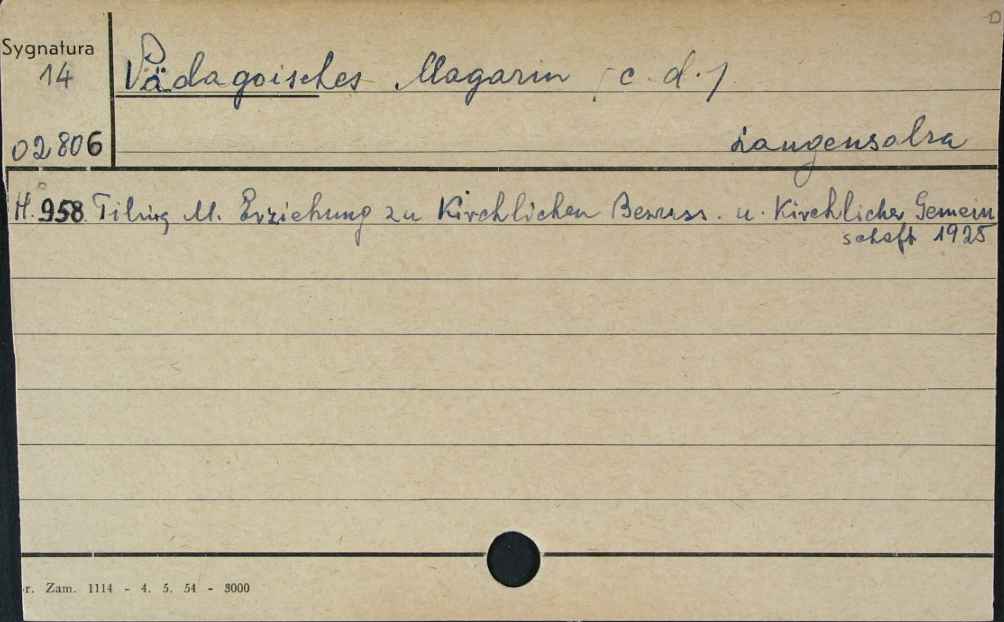 Sygnatura
14
Pädagoisches Magarin (c. d.)
02806
Langensalza
H. 958 Tiling M. Erziehung zu Kirchlichen Bewuss. u. Kirchlicher Gemein
schaft 1925
r. Zam. 1114 - 4. 5. 54 - 3000